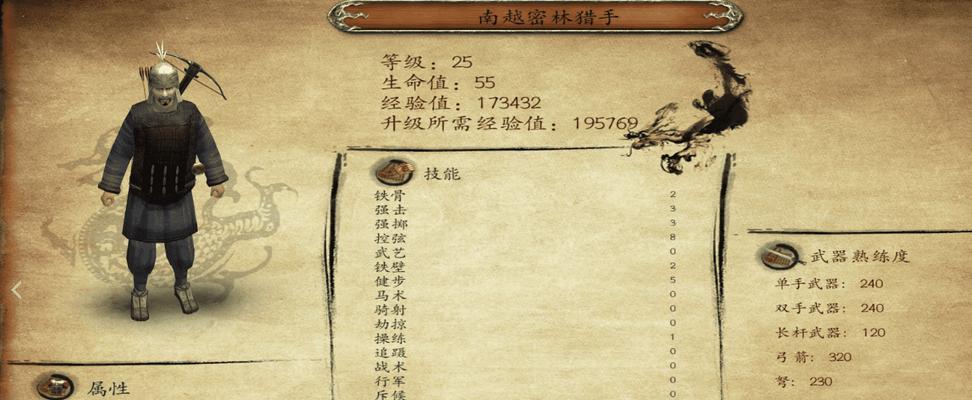 南越密林猎手
等级：25
生命值：55
经验值：173432
升级所需经验值：195769
技能
铁骨 2
强击 3
强掷 3
控弦 8
武艺 0
铁壁 2
健步 5
马术 0
骑射 0
劫掠 0
操练 1
追蹑 0
战术 0
行军 0
斥候 0
武器熟练度
单手武器：240
双手武器：240
长杆武器：120
弓箭：320
弩：230
属性